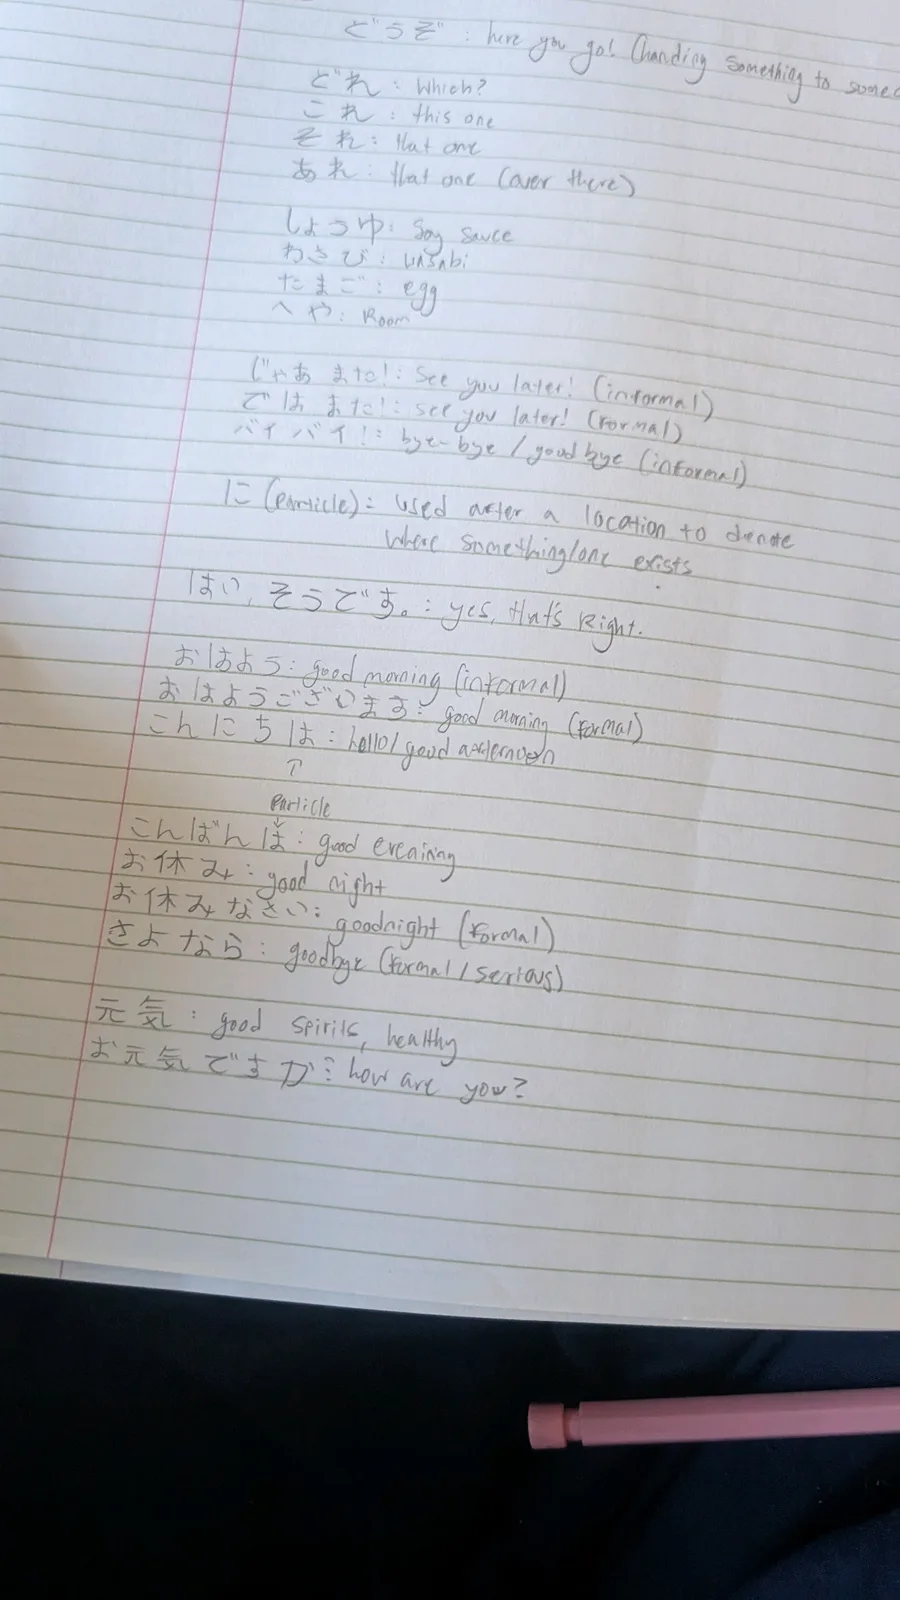 どうぞ : here you go! (handing something to
どれ : Which?
これ : this one
それ : that one
あれ : that one (over there)
しょうゆ : Soy sauce
わさび : wasabi
たまご : egg
へや : Room
じゃあ また! : See you later! (informal)
では また! : see you later! (formal)
バイバイ! : bye-bye / good bye (informal)
に (particle) : used after a location to denote
where something/one exists
はい, そうです。 : yes, that's Right.
おはよう : good morning (informal)
おはようございます : good morning (formal)
こんにちは : hello/good afternoon
↑
particle
↓
こんばんは : good evening
お休み : good night
お休みなさい : goodnight (formal)
さよなら : goodbye (formal / serious)
元気 : good spirits, healthy
お元気ですか : how are you?